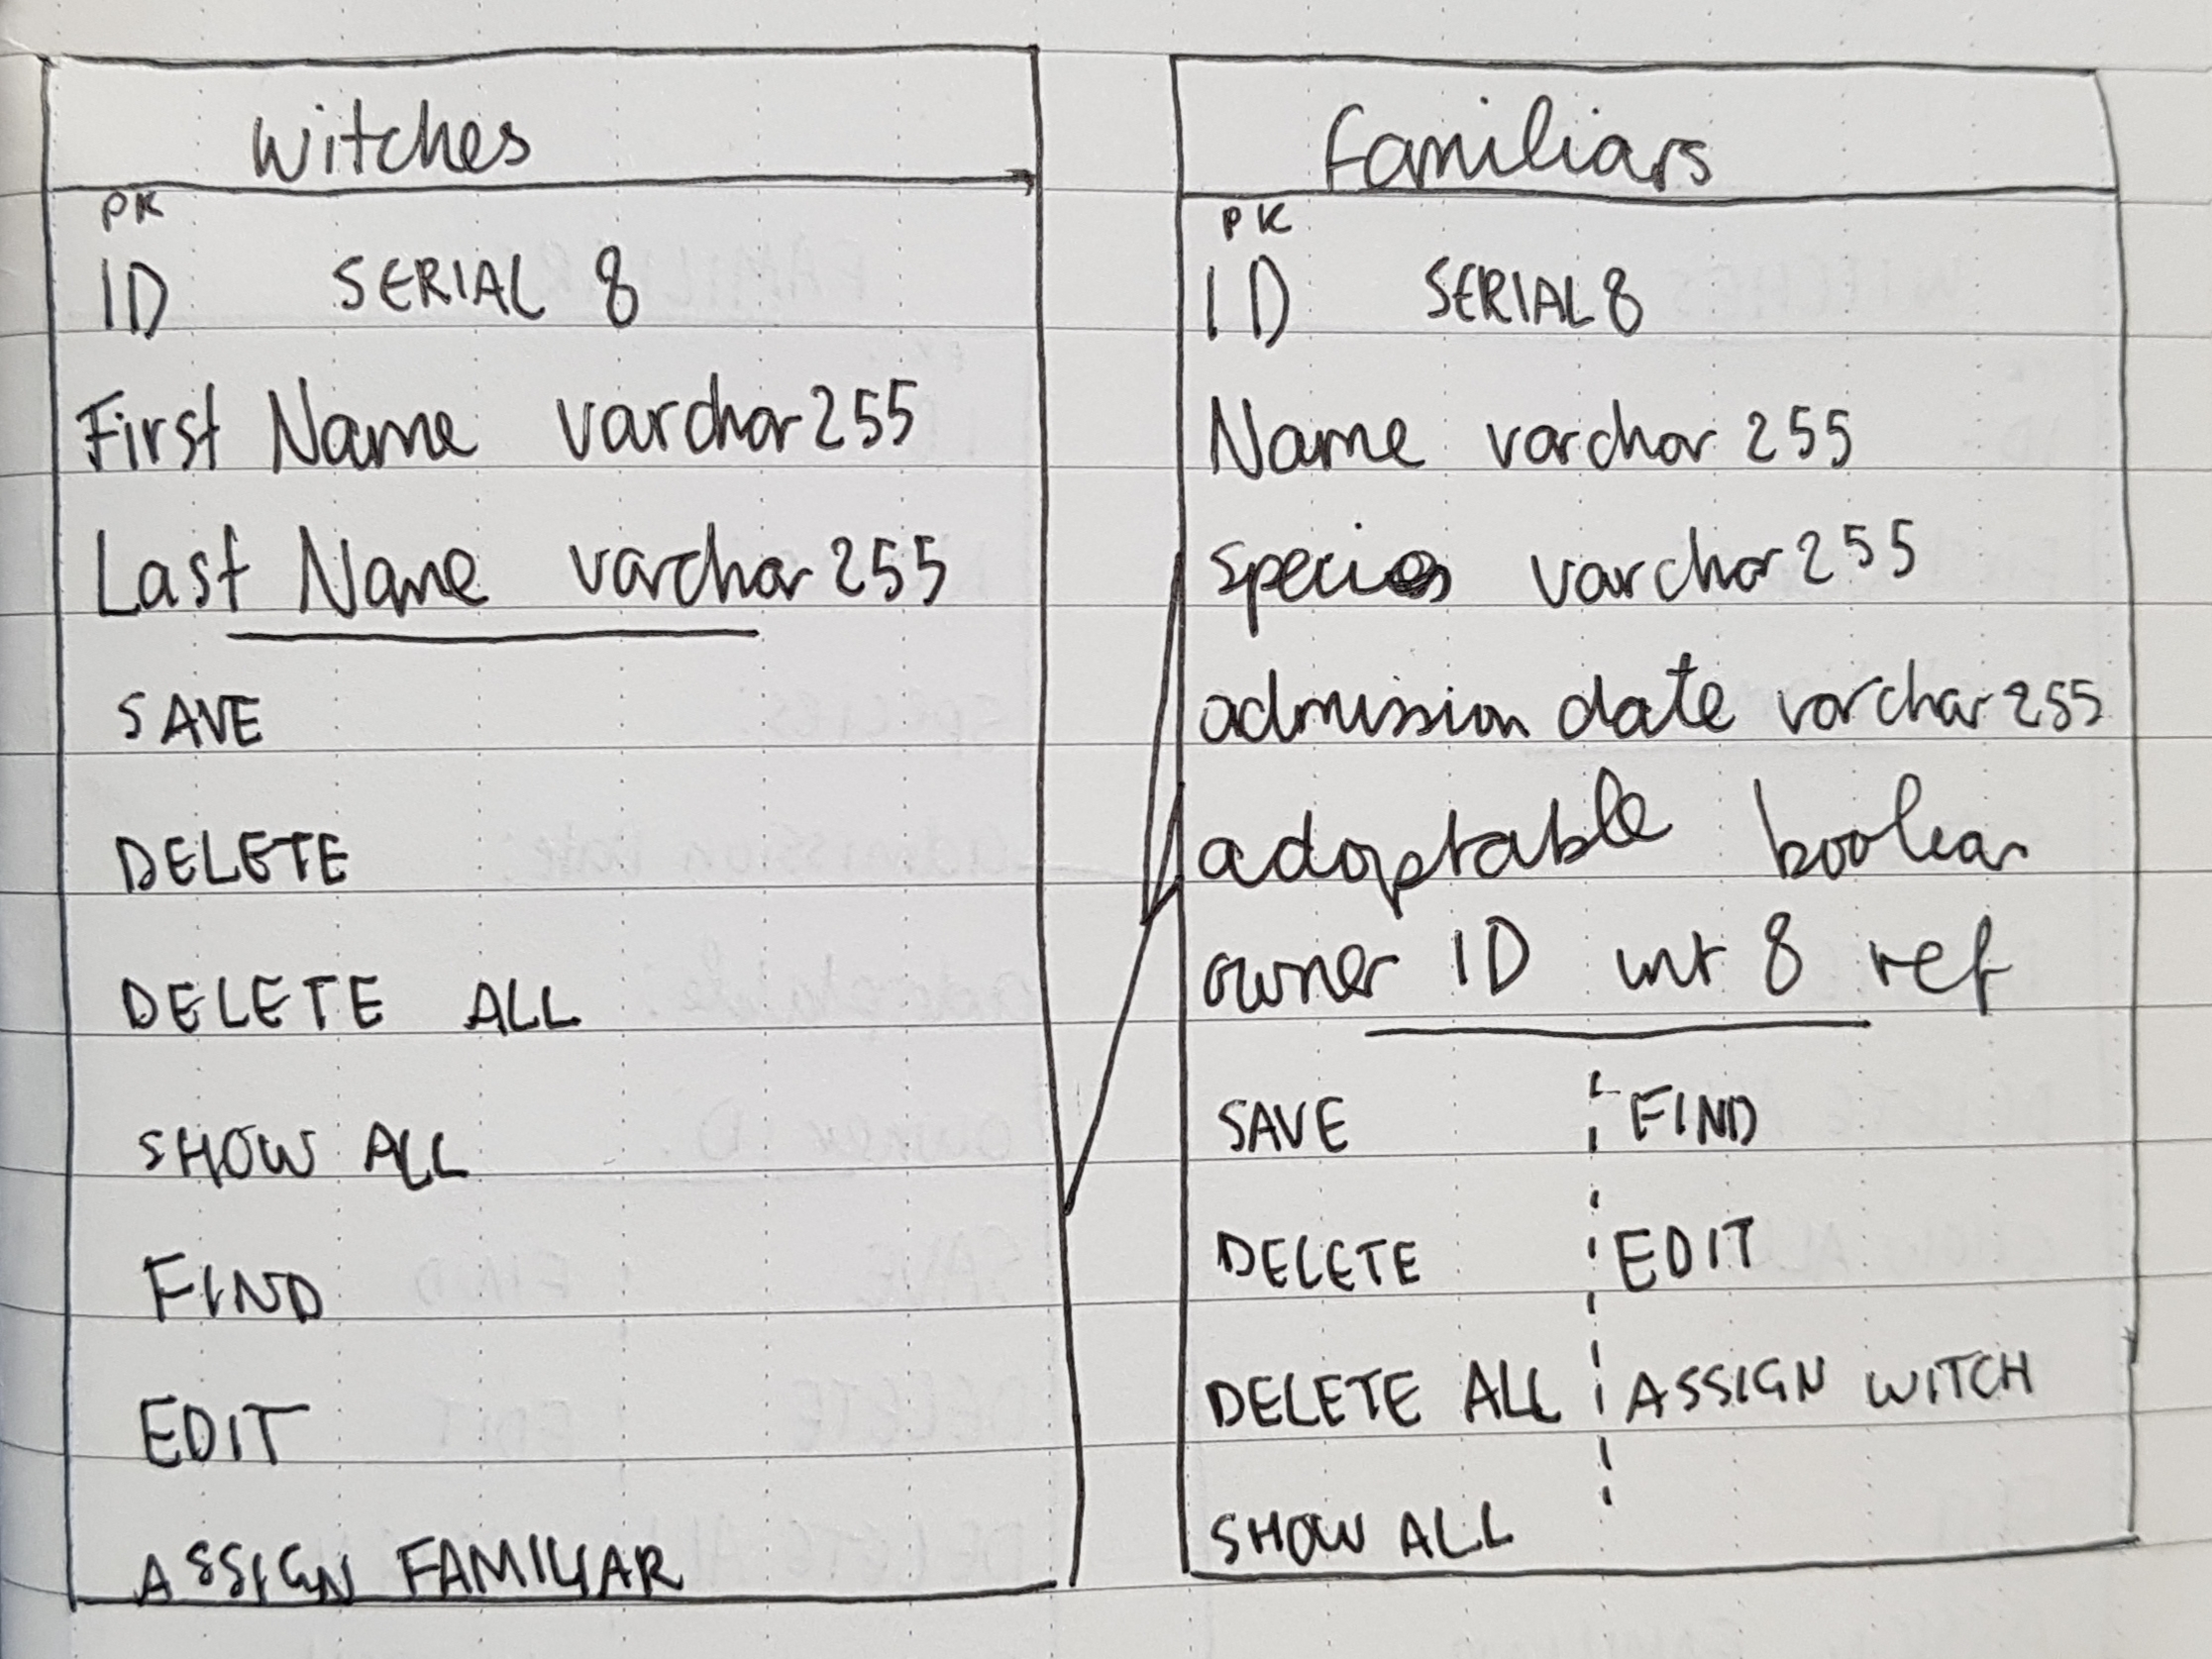 Witches
PK
ID SERIAL 8
First Name varchar 255
Last Name varchar 255
SAVE
DELETE
DELETE ALL
SHOW ALL
FIND
EDIT
ASSIGN FAMILIAR
Familiars
PK
ID SERIAL 8
Name varchar 255
species varchar 255
admission date varchar 255
adoptable boolean
owner ID int 8 ref
SAVE
DELETE
DELETE ALL
SHOW ALL
FIND
EDIT
ASSIGN WITCH